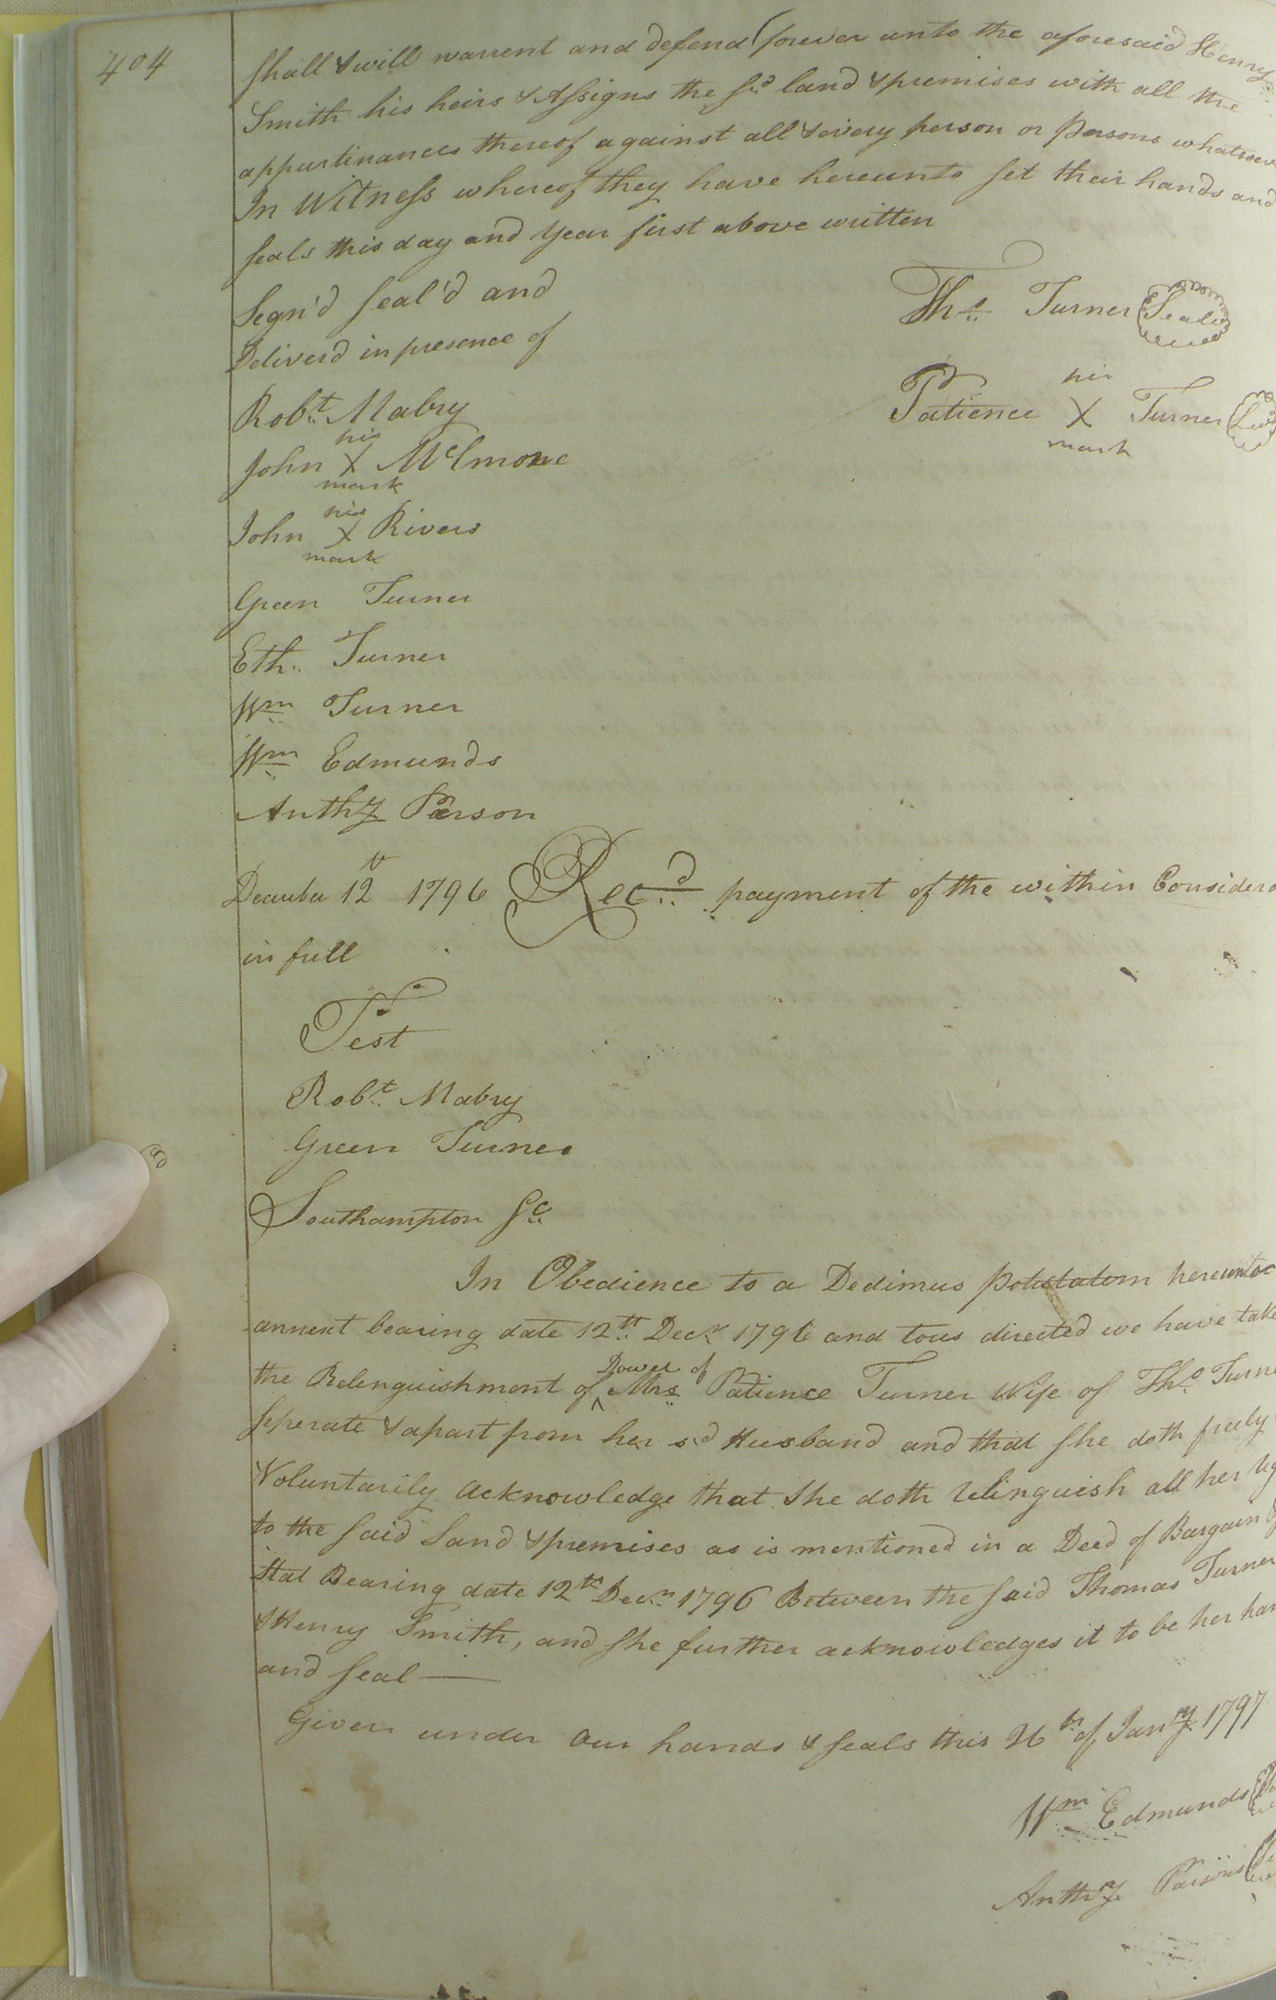 404
shall & will warrent and defend forever unto the aforesaid Henry
Smith his heirs & Assigns the sd land & premises with all the
appurtinances thereof against all & every person or Persons whatsoev
In Witness whereof they have hereunto set their hands and
seals this day and Year first above written
Segn'd seal'd and
Deliverd in presence of
Thos Turner Seal
Patience his X mark Turner
Robt Mabry
John his X mark McLmore
John his X mark Rivers
Green Turner
Eth. Turner
Wm Turner
Wm Edmunds
Anthy Parson
December 12 1796 Recd payment of the within Considera
in full
Test
Robt Mabry
Green Turner
Southampton Sc
In Obedience to a Dedimus potstatom hereunto
annext bearing date 12th Decr 1796 and tous directed we have take
the Relenquishment of Dower of Mrs Patience Turner Wife of Thos Turne
sperate & apart from her sd Husband and that she doth freely
Voluntarily acknowledge that she doth relinquish all her
to the said Land & premises as is mentioned in a Deed of Bargain
Bearing date 12th Decr 1796 Between the said Thomas Turner
& Henry Smith, and she further acknowledges it to be her han
and seal
Given under our hands & seals this 26th of Jany 1797
Wm Edmunds
Anthy Parsons